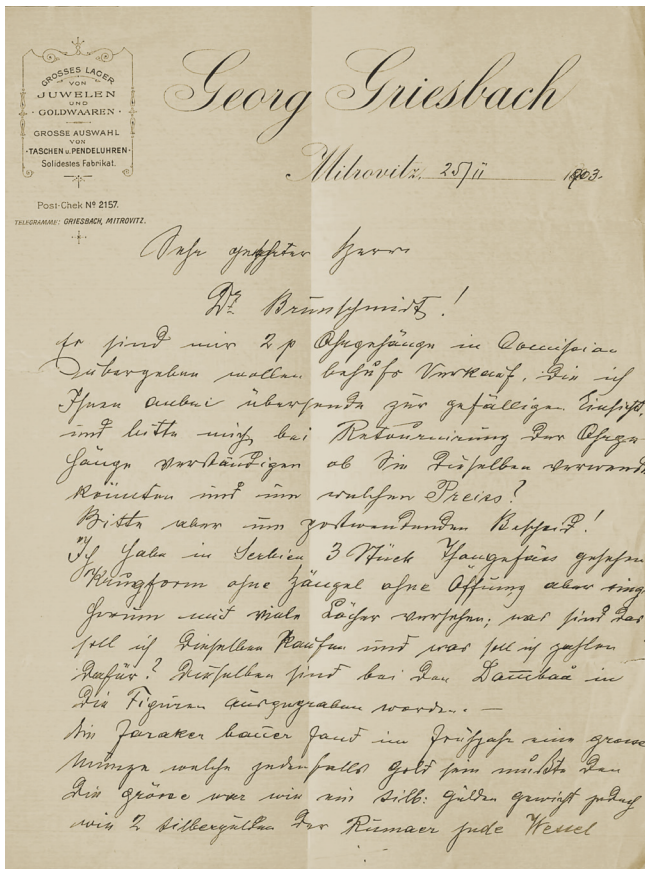 GROSSES LAGER
VON
JUWELEN
UND
GOLDWAAREN
GROSSE AUSWAHL
VON
TASCHEN u. PENDELUHREN
Solidestes Fabrikat.
Post-Chek Nº 2157.
TELEGRAMME: GRIESBACH, MITROVITZ.
Georg Griesbach
Mitrovitz, 25/II 1903.
Sehr geehrter Herr
Dr. Brunschmidt!
Es sind mir 2 p Ohrgehänge in Comission
übergeben wollen behufs Verkauf. Die ich
Ihnen anbei übersende zur gefälligen Einsicht,
und bitte mich bei Retournierung der Ohrge
hänge verständigen ob Sie dieselben verwend
könnten und um welchen Preiss?
Bitte aber um postwendenden Bescheid!
Ich habe in Serbien 3 Stück Thongefäss gesehen
Krugform ohne Hängel ohne Öffnung aber rings
herum mit viele Löcher versehen; was sind das
soll ich dieselben Kaufen und was soll ich zahlen
dafür? Dieselben sind bei den in
die Figuren ausgegraben worden. —
Ein bauer fand im Frühjahr eine grosse
Münze welche jedenfalls Gold sein müsste den
die grösse war wie ein silb: Gulden gewicht jedoch
wie 2 Silbergulden der Rumaer Jude Wessel